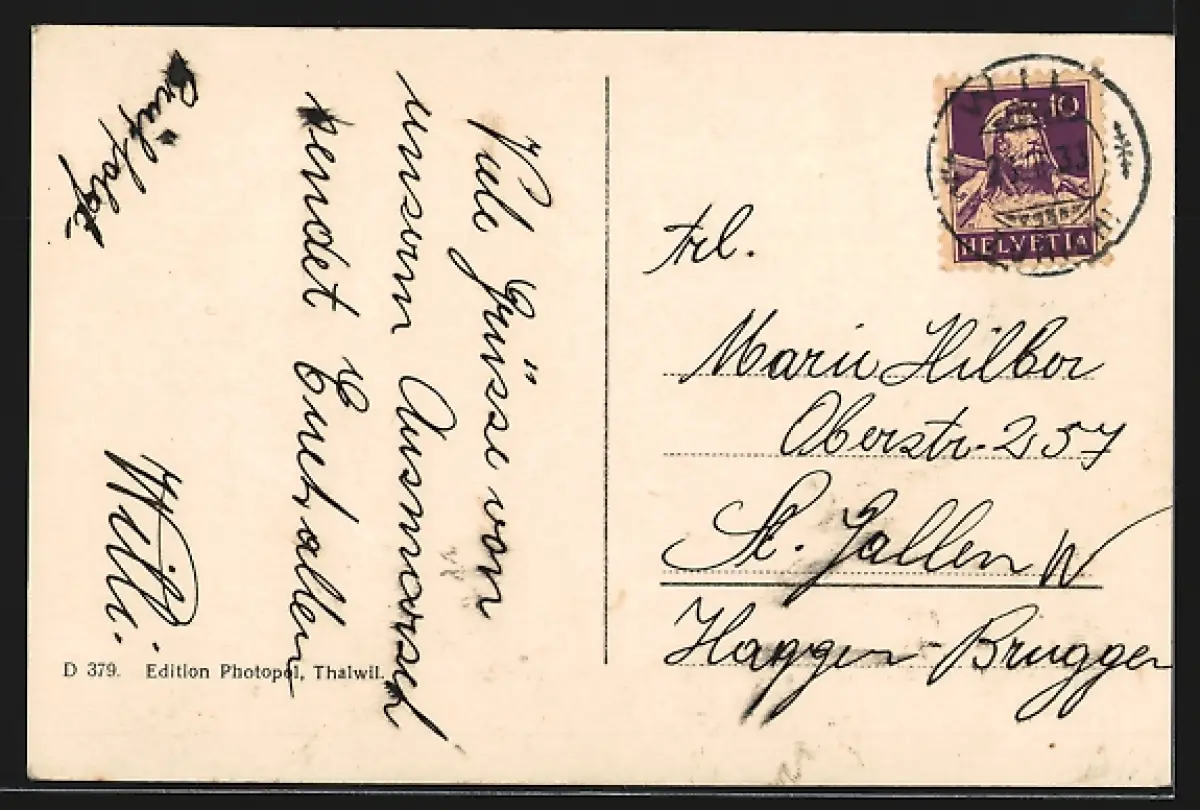 Viele Grüsse von
unserm Ausmarsch
sendet Euch allen
Willi.
Brief folgt.
D 379. Edition Photopol, Thalwil.
10
HELVETIA
Frl.
Marie Hilber
Oberstr. 257
St. Gallen W
Haggen-Bruggen